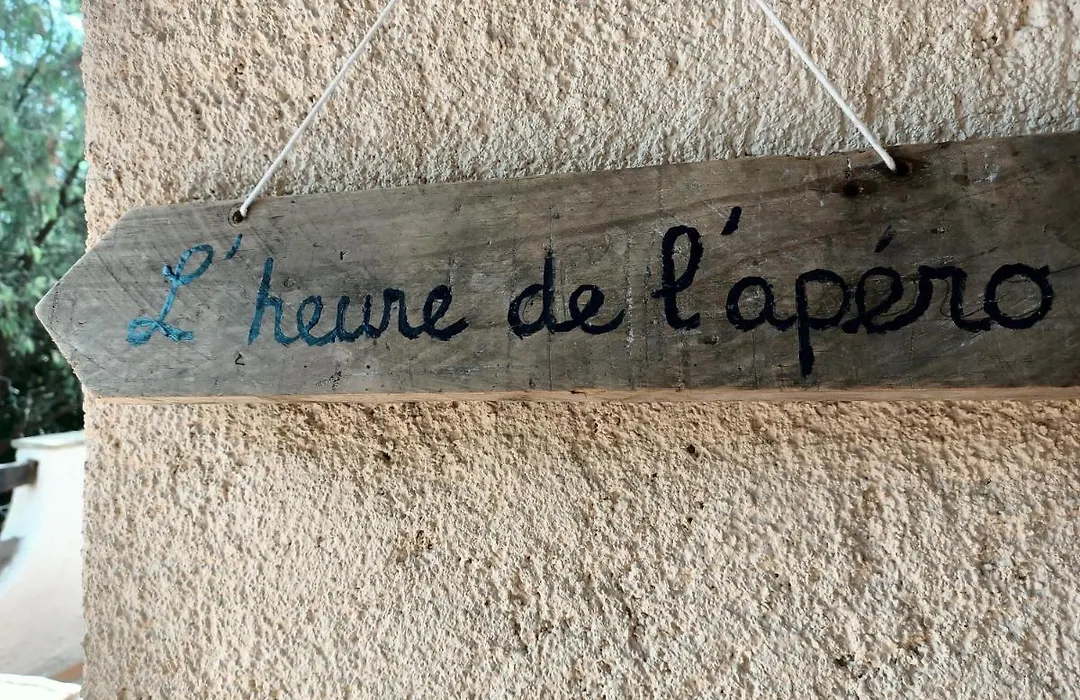 L'heure de l'apéro